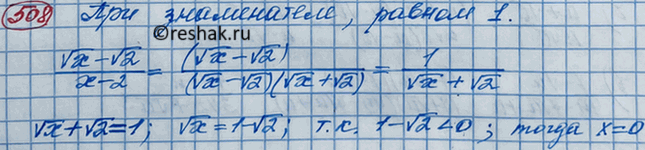 508) При знаменателе, равном 1.
©reshak.ru
(√x−√2)/(x−2) = (√x−√2)/((√x−√2)(√x+√2)) = 1/(√x+√2)
√x+√2=1; √x=1−√2; т.к. 1−√2<0; тогда x=0